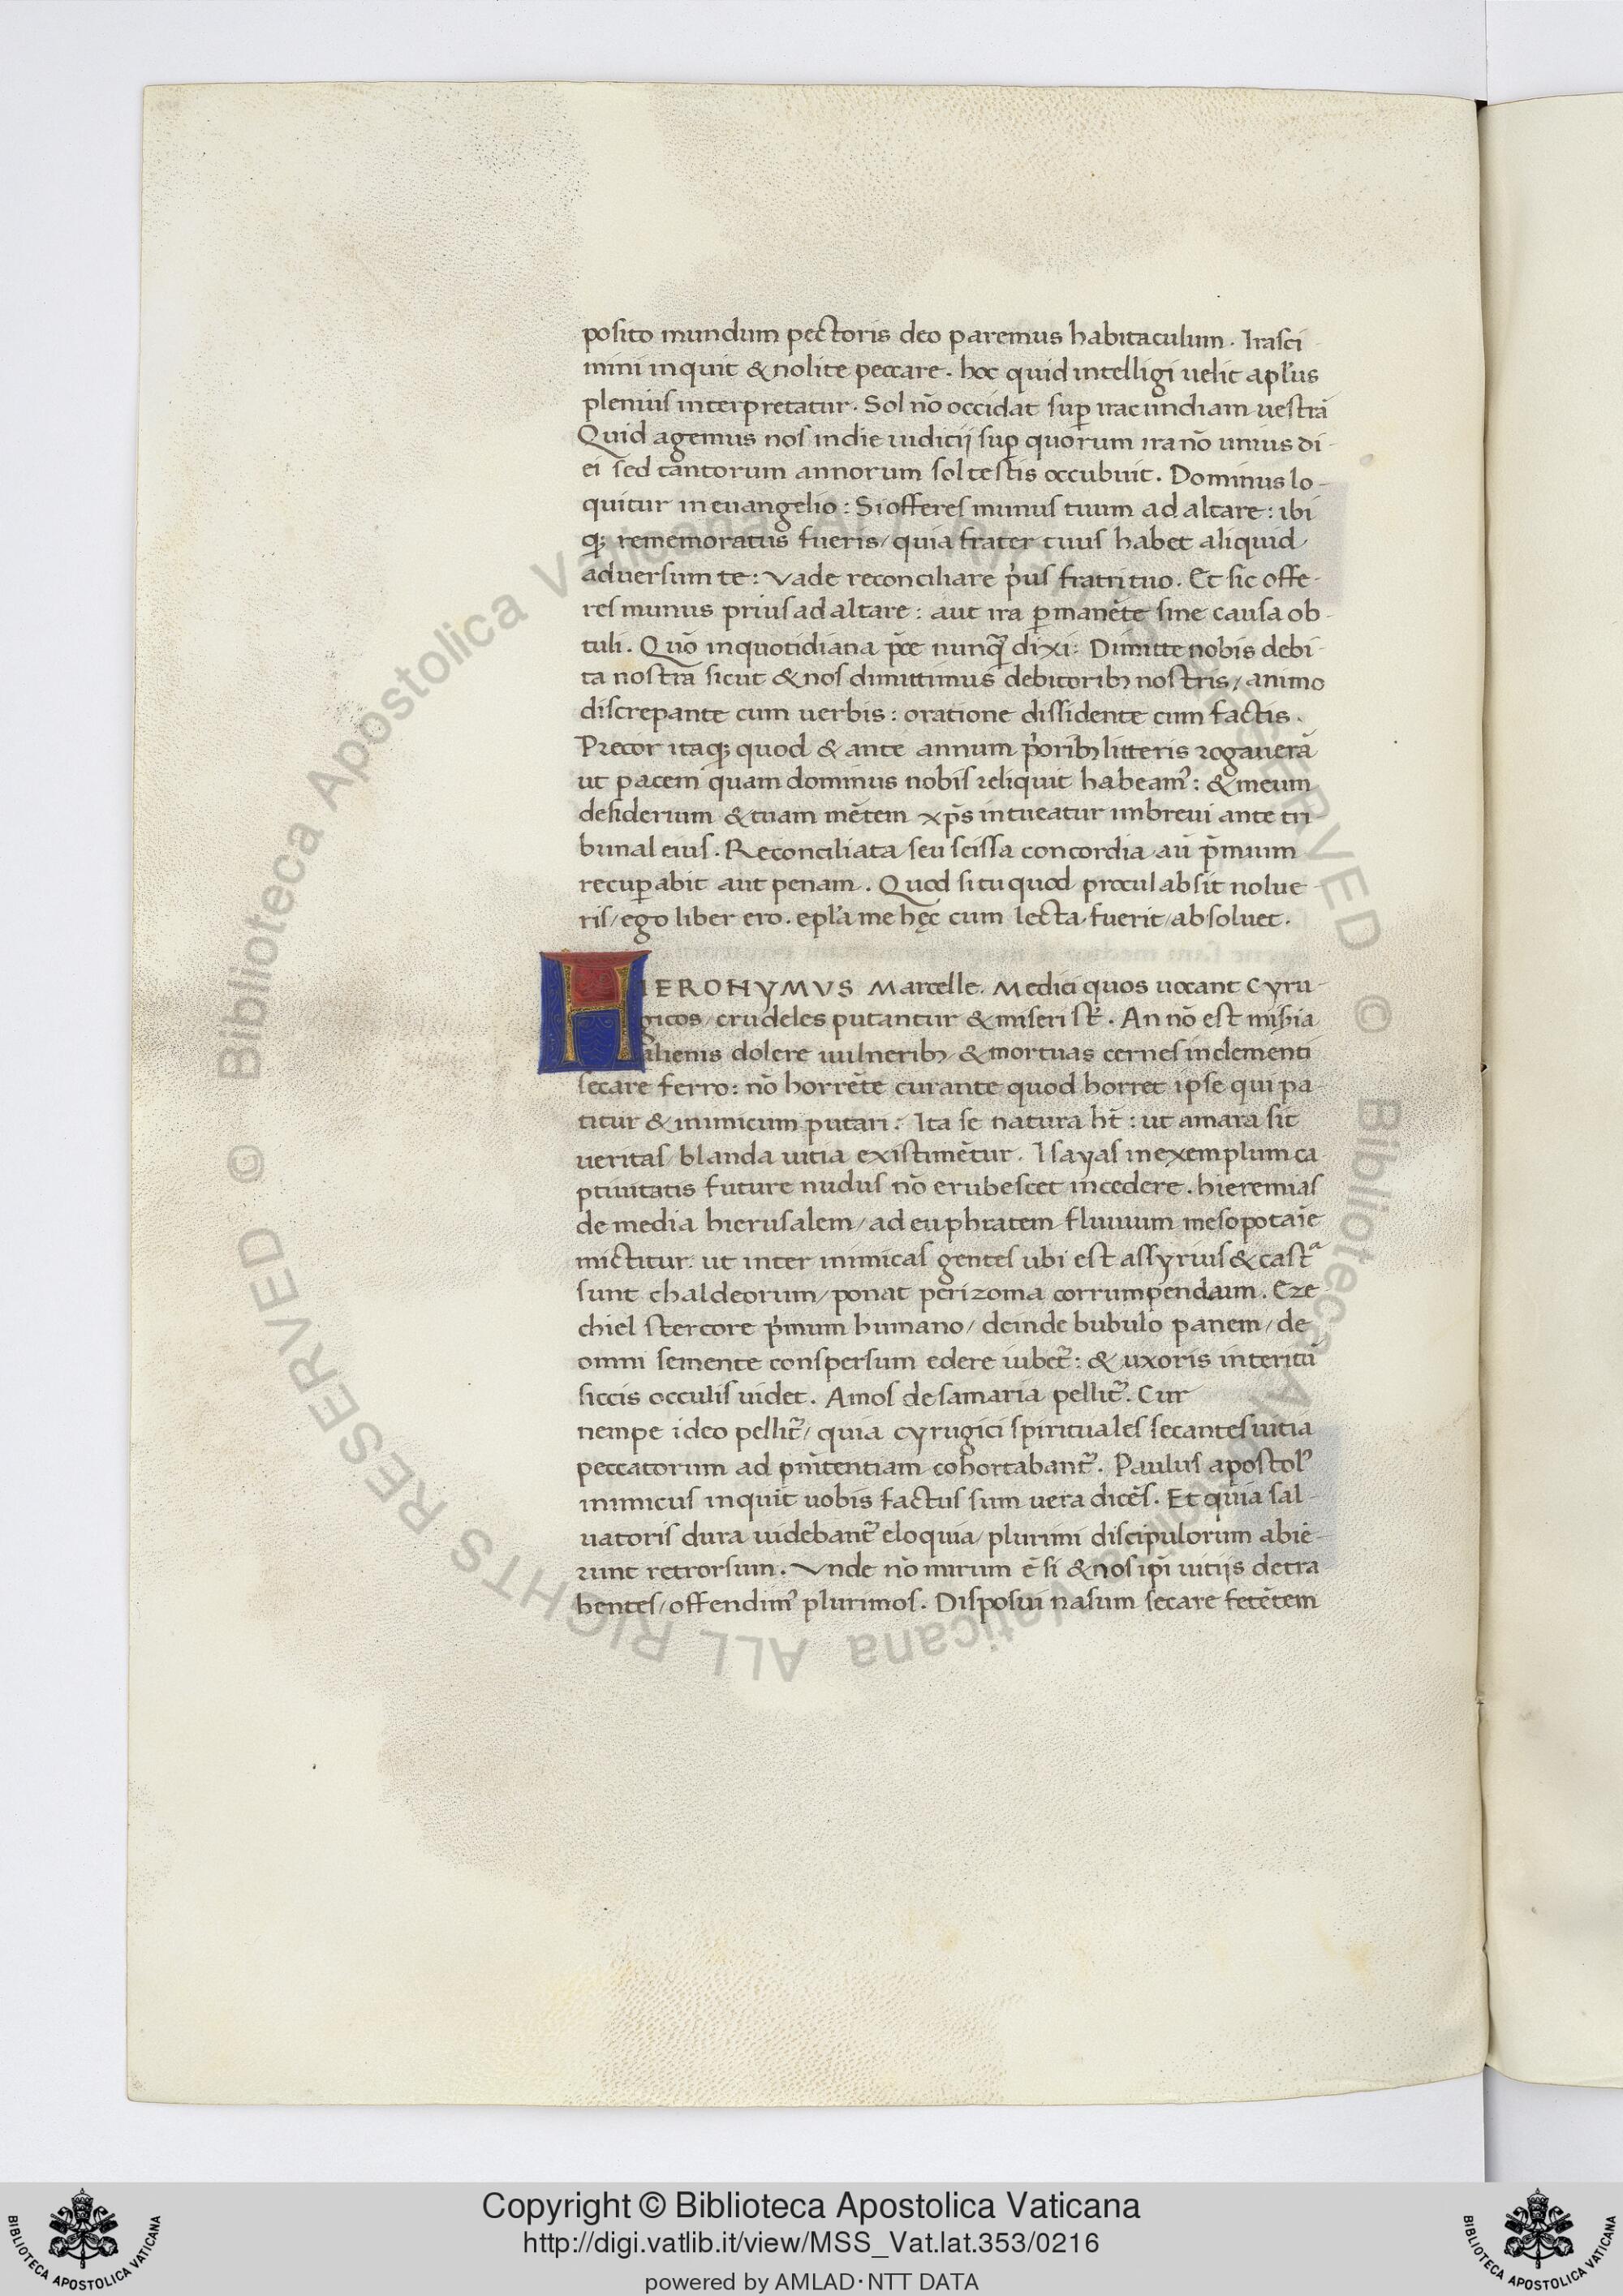 posito mundum pectoris deo paremus habitaculum. Irasci
mini inquit & nolite peccare. hoc quid intelligi uelit apl'us
plenius interpretatur. Sol nō occidat sup iracundiam uestrā
Quid agemus nos in die iudicij sup quorum ira nō unius di-
ei sed tantorum annorum sol testis occubuit. Dominus lo-
quitur in euangelio: Si offeres munus tuum ad altare: ibi
q; rememoratus fueris/ quia frater tuus habet aliquid
aduersum te: Vade reconciliare p'us fratri tuo. Et sic offe-
res munus prius ad altare: aut ira pmanēte sine causa ob-
tuli. Quō in quotidiana p̄ce nunq̄ dixi: Dimitte nobis debi-
ta nostra sicut & nos dimittimus debitorib; nostris/ animo
discrepante cum uerbis: oratione dissidente cum factis.
Precor itaq; quod & ante annum p'orib; litteris rogauerā
ut pacem quam dominus nobis reliquit habeam': & meum
desiderium & tuam mētem xp̄s intueatur in breui ante tri
bunal eius. Reconciliata seu scissa concordia aū p̄mium
recupabit aut penam. Quod si tu quod procul absit nolue-
ris/ ego liber ero. epl'a me hęc cum lecta fuerit/ absoluet.
HIERONYMVS Marcelle. Medici quos uocant Cyru-
gicos/ crudeles putantur & miseri st̄. An nō est miseria
alienis dolere uulnerib; & mortuas cernes inclementi
secare ferro: nō horrēte curante quod horret ipse qui pa-
titur & inimicum putari. Ita se natura ht̄: ut amara sit
ueritas/ blanda uitia existimētur. Isayas in exemplum ca
ptiuitatis future nudus nō erubescet incedere. hieremias
de media hierusalem/ ad euphratem fluuium mesopotaīe
mictitur. ut inter inimicas gentes ubi est assyrius & castᵃ
sunt chaldeorum/ ponat perizoma corrumpendaum. Eze-
chiel stercore p'mum humano/ deinde bubulo panem/ de
omni semente conspersum edere iubet': & uxoris interitū
siccis occulis uidet. Amos de samaria pellit'. Cur
nempe ideo pellit'/ quia cyrugici spirituales secantes uitia
peccatorum ad pn̄itentiam cohortabant'. Paulus apostol'
inimicus inquit uobis factus sum uera dicēs. Et quia sal-
uatoris dura uidebant' eloquia/ plurimi discipulorum abie-
runt retrorsum. Vnde nō mirum ē si & nos ipi uitijs detra
hentes/ offendim' plurimos. Disposui nasum secare fetētem
© Biblioteca Apostolica Vaticana ALL RIGHTS RESERVED © Biblioteca Apostolica Vaticana ALL RIGHTS RESERVED
BIBLIOTECA APOSTOLICA VATICANA
Copyright © Biblioteca Apostolica Vaticana
http://digi.vatlib.it/view/MSS_Vat.lat.353/0216
powered by AMLAD·NTT DATA
BIBLIOTECA APOSTOLICA VATICANA